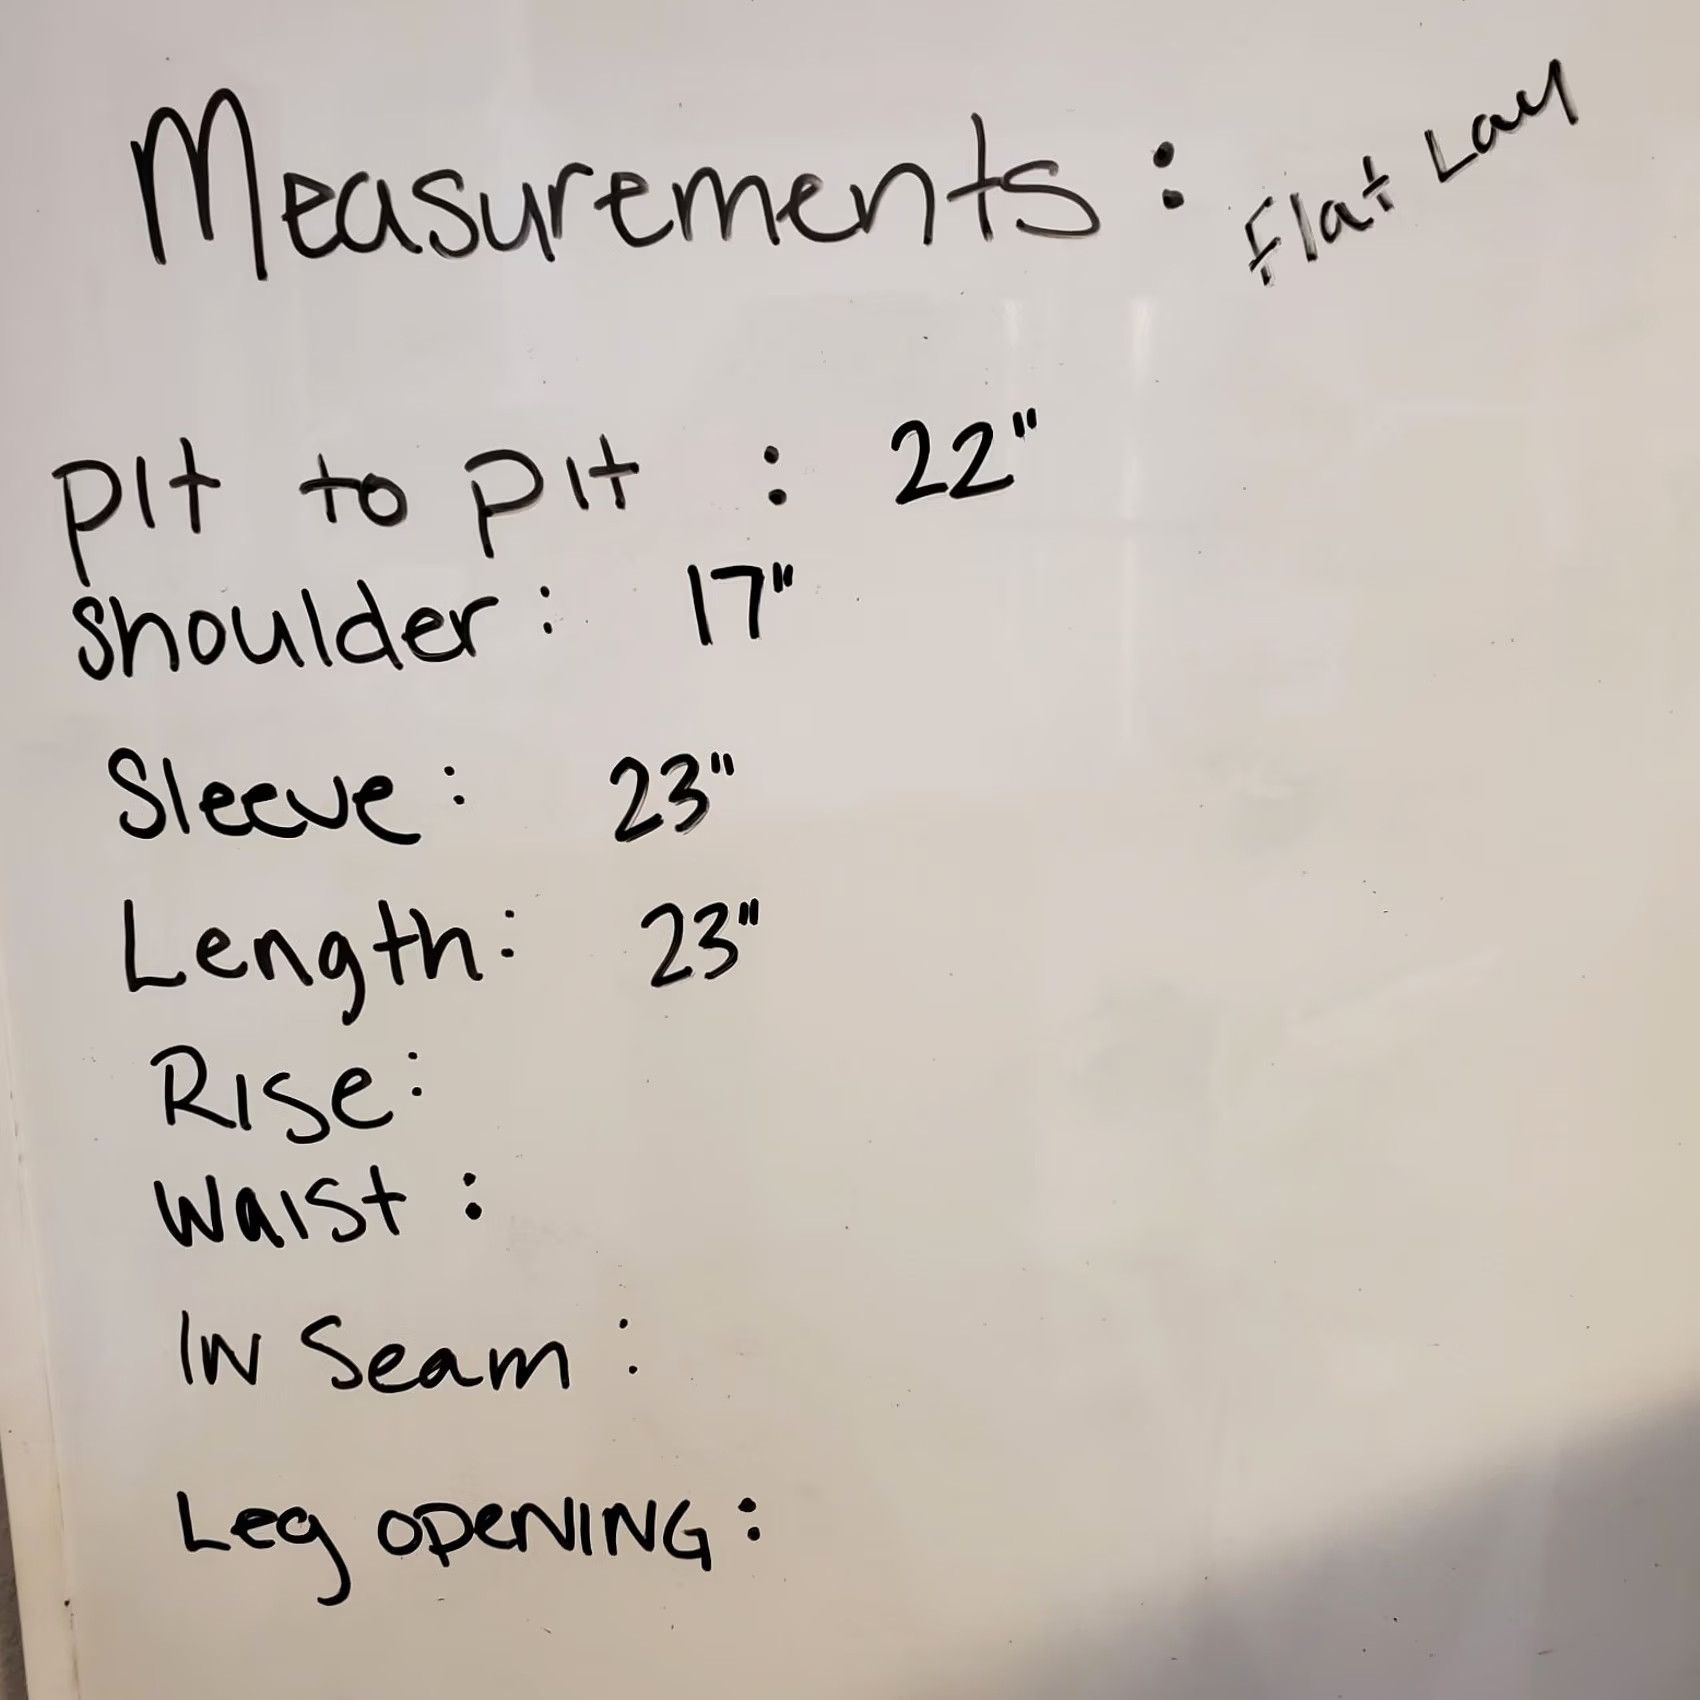 Measurements : Flat Lay
Pit to Pit : 22"
Shoulder : 17"
Sleeve : 23"
Length : 23"
Rise :
Waist :
IN Seam :
Leg OPeNING :